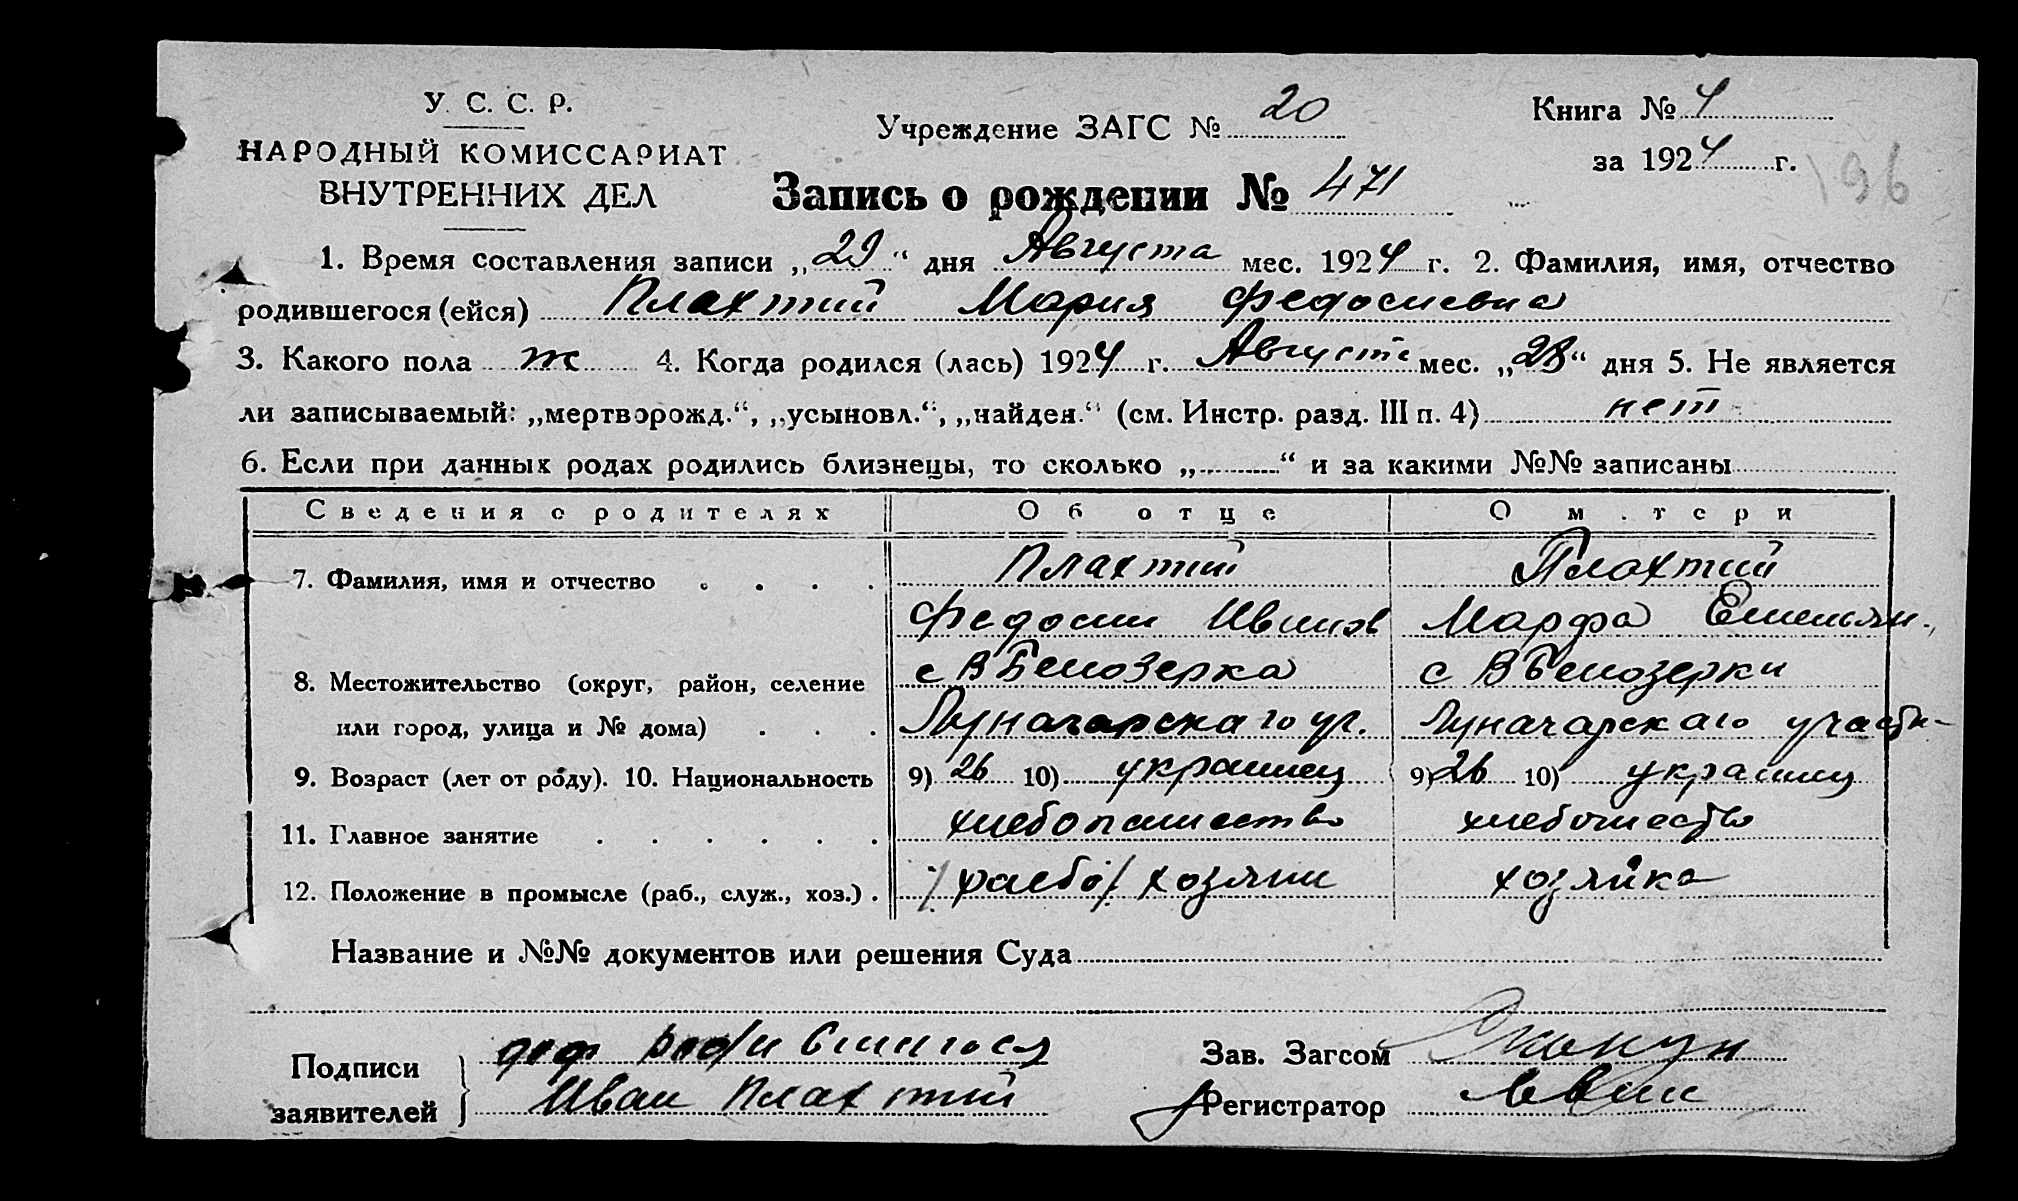 У. С. С. Р.
НАРОДНЫЙ КОМИССАРИАТ
ВНУТРЕННИХ ДЕЛ
Учреждение ЗАГС № 20
Книга № 4
за 1924 г.
196
Запись о рождении № 471
1. Время составления записи „29“ дня Августа мес. 1924 г. 2. Фамилия, имя, отчество
родившегося (ейся) Плахтий Мария Федосиевна
3. Какого пола ж 4. Когда родился (лась) 1924 г. Августа мес. „28“ дня 5. Не является
ли записываемый: „мертворожд.“, „усыновл.“, „найден.“ (см. Инстр. разд. III п. 4) нет
6. Если при данных родах родились близнецы, то сколько „ “ и за какими №№ записаны
Сведения о родителях Об отце О м.тери
7. Фамилия, имя и отчество Плахтий Плахтий
Федосий Иванов Марфа Емельян.
8. Местожительство (округ, район, селение с В Белозерка с В Белозерки
или город, улица и № дома) Луначарского уч. Луначарскаго участк-
9. Возраст (лет от роду). 10. Национальность 9) 26 10) украинец 9) 26 10) украинц
11. Главное занятие хлебопашество хлебопашество
12. Положение в промысле (раб., служ., хоз.) хозяин хозяйка
Название и №№ документов или решения Суда
Подписи заявителей
дед родившегося
Иван Плахтий
Зав. Загсом
Регистратор Левин